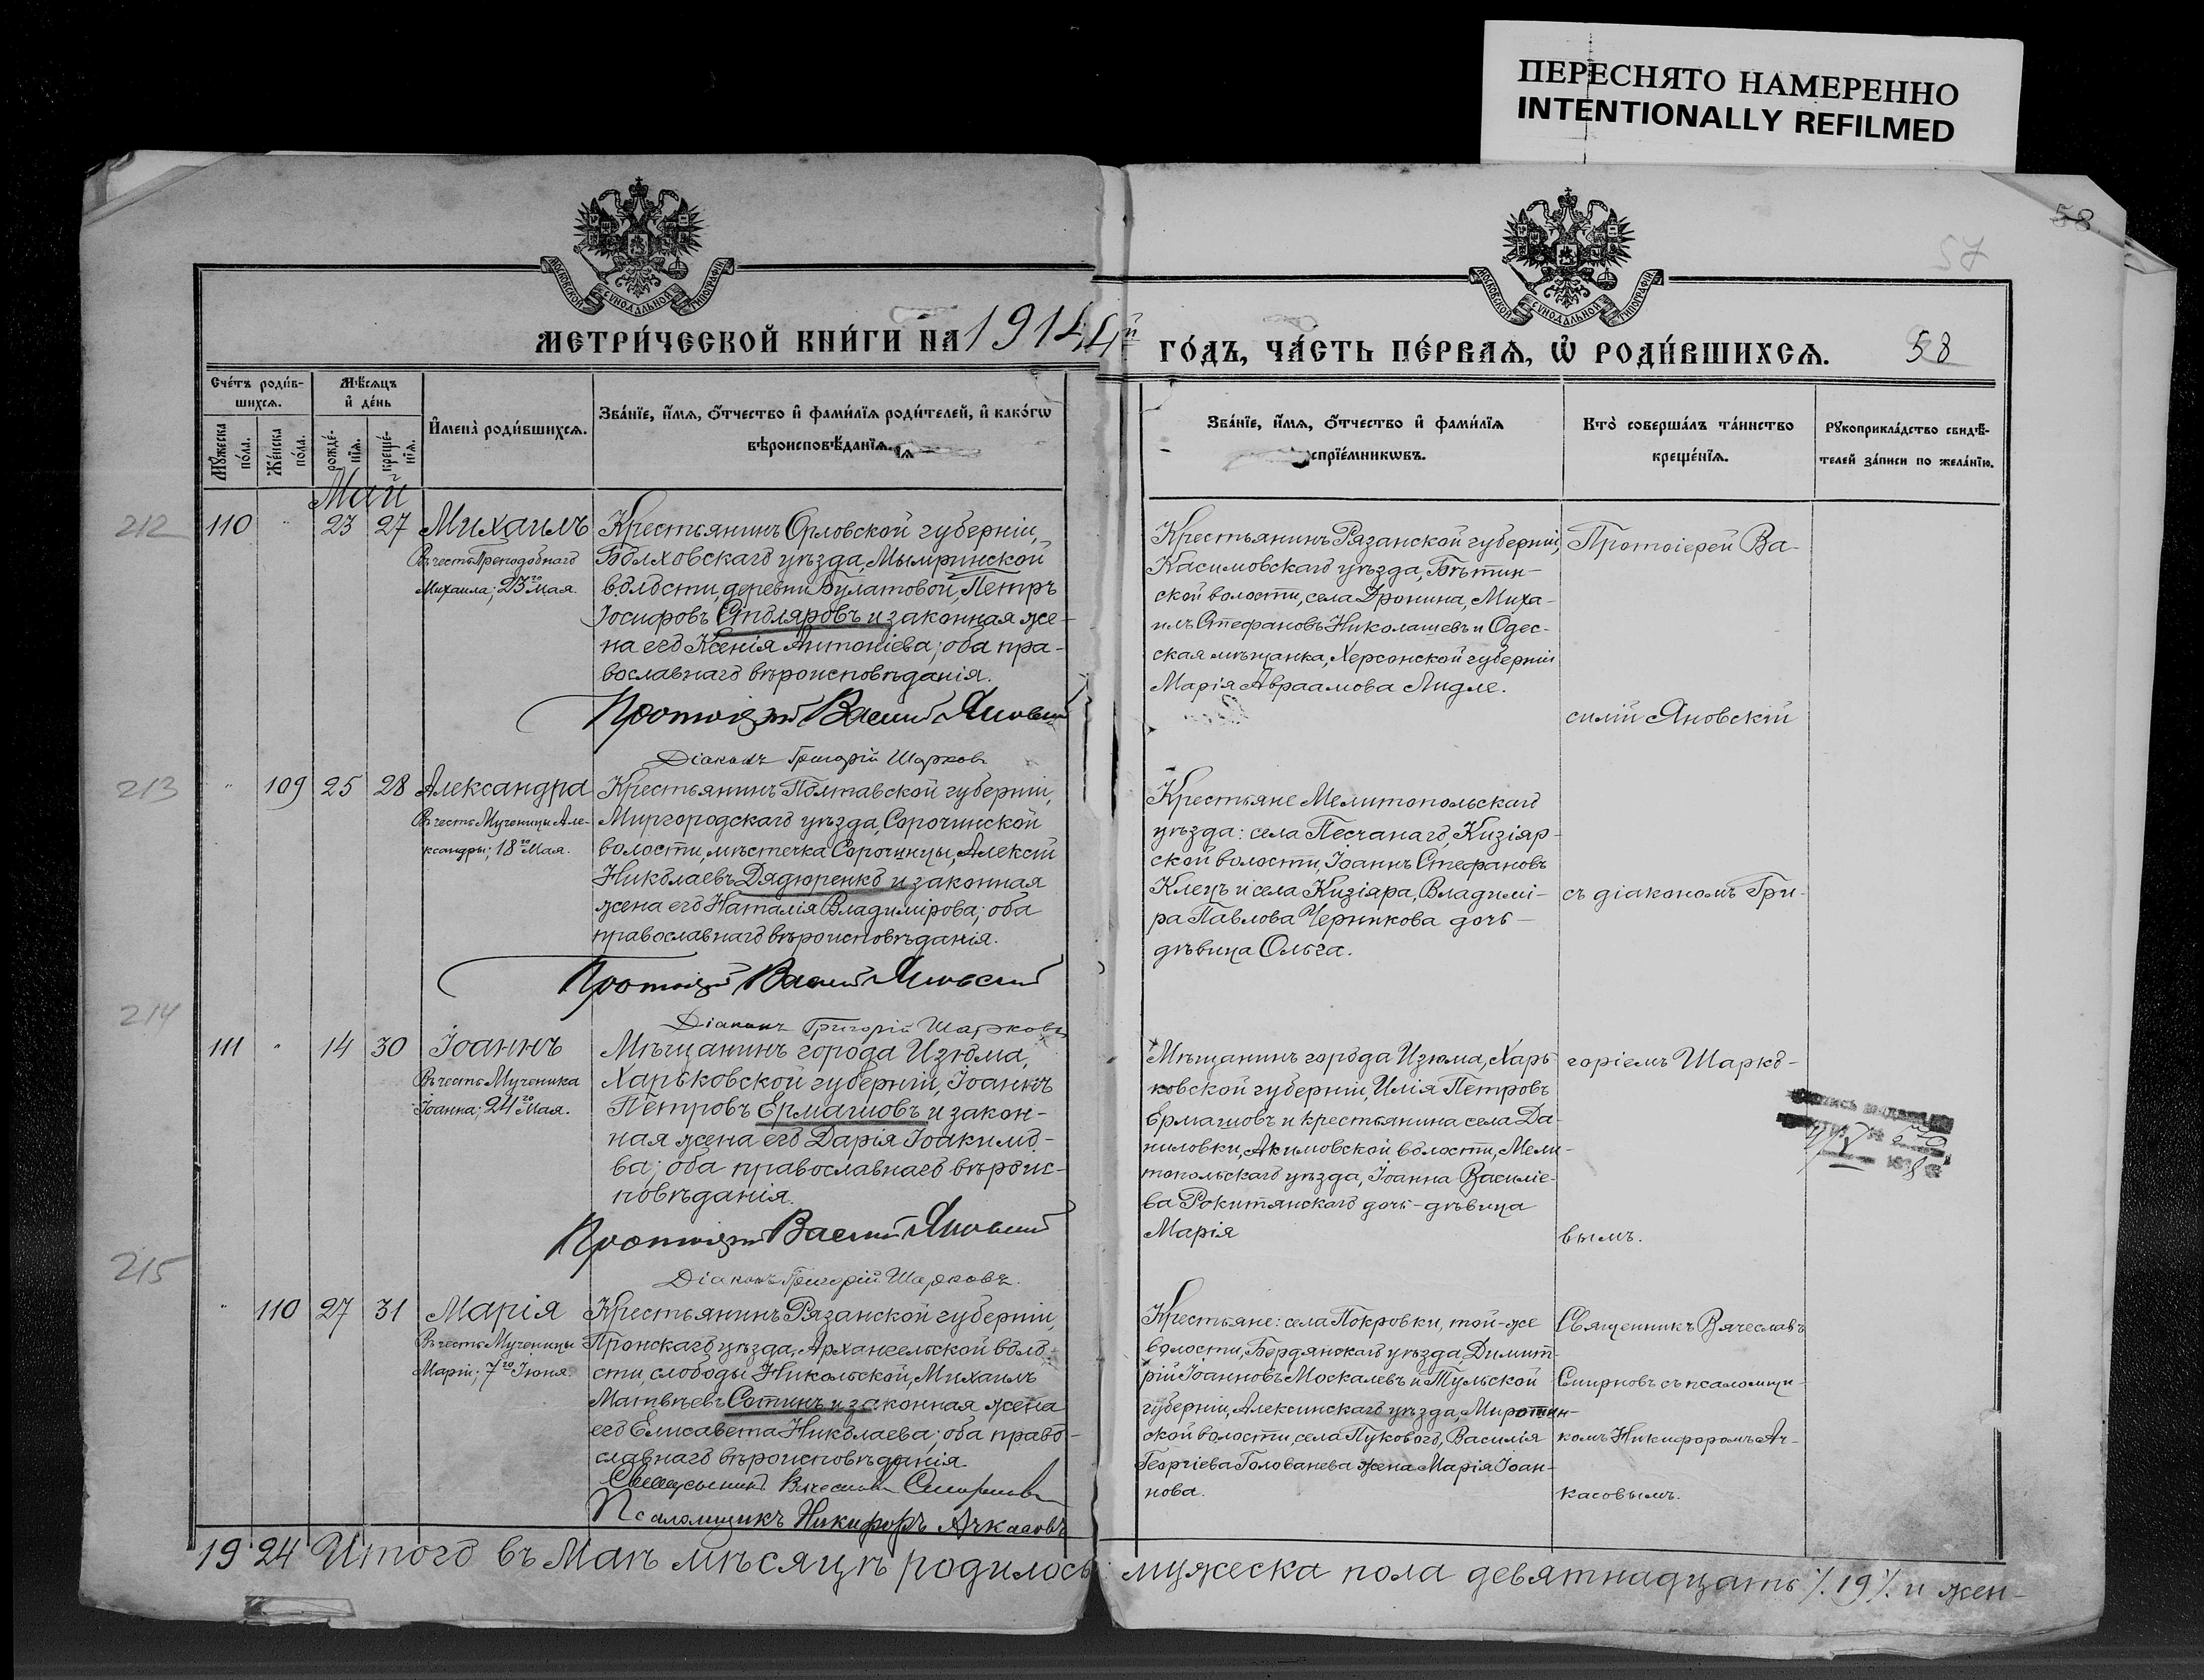 ПЕРЕСНЯТО НАМЕРЕННО
INTENTIONALLY REFILMED
58
57
МОСКОВСКОЙ СѴНОДАЛЬНОЙ ТИПОГРАФІИ
МОСКОВСКОЙ СѴНОДАЛЬНОЙ ТИПОГРАФІИ
МЕТРИ́ЧЕСКОЙ КНИ́ГИ НА 1914
4й ГО́ДЪ, ЧА́СТЬ ПЕ́РВАѦ, Ѡ҆ РОДИ́ВШИХСѦ.
58
Сче́тъ роди́в-
шихсѧ.
Мꙋ́жеска по́ла.
Же́нска по́ла.
Мѣ́сѧцъ
и҆ де́нь
рожде́-
нїѧ.
креще́-
нїѧ.
И҆мена̀ роди́вшихсѧ.
Зва́нїе, и҆́мѧ, ѻ҆́тчество и҆ фами́лїѧ роди́телей, и҆ како́гѡ
вѣроисповѣ́данїѧ.
Зва́нїе, и҆́мѧ, ѻ҆́тчество и҆ фами́лїѧ
спрїе́мникѡвъ.
Кто̀ соверша́лъ та́инство
креще́нїѧ.
Рꙋкоприкла́дство свидѣ́-
телей за́писи по жела́нїю.
Май
212
110 " 23 27 Михаилъ
Въ честь Преподобнаго
Михаила; 23го Мая.
Крестьянинъ Орловской губерніи,
Болховскаго уѣзда, Мымринской
волости, деревни Булатовой, Петръ
Іосифовъ Столяровъ и законная же-
на его Ксенія Антоніева; оба пра-
вославнаго вѣроисповѣданія.
Протоіерей Василій Яновскій
Діаконъ Григорій Шарковъ
Крестьянинъ Рязанской губерніи,
Касимовскаго уѣзда, Бѣтин-
ской волости, села Дронина, Миха-
илъ Стефановъ Николашевъ и Одес-
ская мѣщанка, Херсонской губерніи
Марія Авраамова Лидле.
Протоіерей Ва-
силій Яновскій
213
" 109 25 28 Александра
Въ честь Мученицы Але-
ксандры; 18го Мая.
Крестьянинъ Полтавской губерніи,
Миргородскаго уѣзда, Сорочинской
волости, мѣстечка Сорочинцы, Алексій
Николаевъ Дядюренко и законная
жена его Наталія Владимірова; оба
православнаго вѣроисповѣданія.
Протоіерей Василій Яновскій
Діаконъ Григорій Шарковъ
Крестьяне Мелитопольскаго
уѣзда: села Песчанаго, Кизіяр-
ской волости, Іоаннъ Стефановъ
Клецъ и села Кизіяра, Владимі-
ра Павлова Черникова дочь -
дѣвица Ольга.
съ діакономъ Гри-
214
111 " 14 30 Іоаннъ
Въ честь Мученика
Іоанна; 24го Мая.
Мѣщанинъ города Изюма,
Харьковской губерніи, Іоаннъ
Петровъ Ермашовъ и закон-
ная жена его Дарія Іоакимо-
ва; оба православнаго вѣроис-
повѣданія.
Протоіерей Василій Яновскій
Діаконъ Григорій Шарковъ.
Мѣщанинъ города Изюма, Харь-
ковской губерніи, Илія Петровъ
Ермашовъ и крестьянина села Да-
ниловки, Акимовской волости, Мели-
топольскаго уѣзда, Іоанна Василіе-
ва Рокитянскаго дочь - дѣвица
Марія
горіемъ Шарко-
вымъ.
215
" 110 27 31 Марія
Въ честь Мученицы
Маріи; 7го Іюня.
Крестьянинъ Рязанской губерніи,
Пронскаго уѣзда, Архангельской воло-
сти, слободы Никольской, Михаилъ
Матвѣевъ Сотинъ и законная жена
его Елисавета Николаева; оба право-
славнаго вѣроисповѣданія.
Священникъ Вячеславъ Смирновъ
Псаломщикъ Никифоръ Ачкасовъ
Крестьяне: села Покровки, той-же
волости, Бердянскаго уѣзда, Димит-
рій Іоанновъ Москалевъ и Тульской
губерніи, Алексинскаго уѣзда, Миротин-
ской волости, села Пуковаго, Василія
Георгіева Голованева жена Марія Іоан-
нова.
Священникъ Вячеславъ
Смирновъ съ псаломщи-
комъ Никифоромъ Ач-
касовымъ.
19 24 Итого въ Маѣ мѣсяцѣ родилось мужеска пола девятнадцать /. 19 /. и жен-